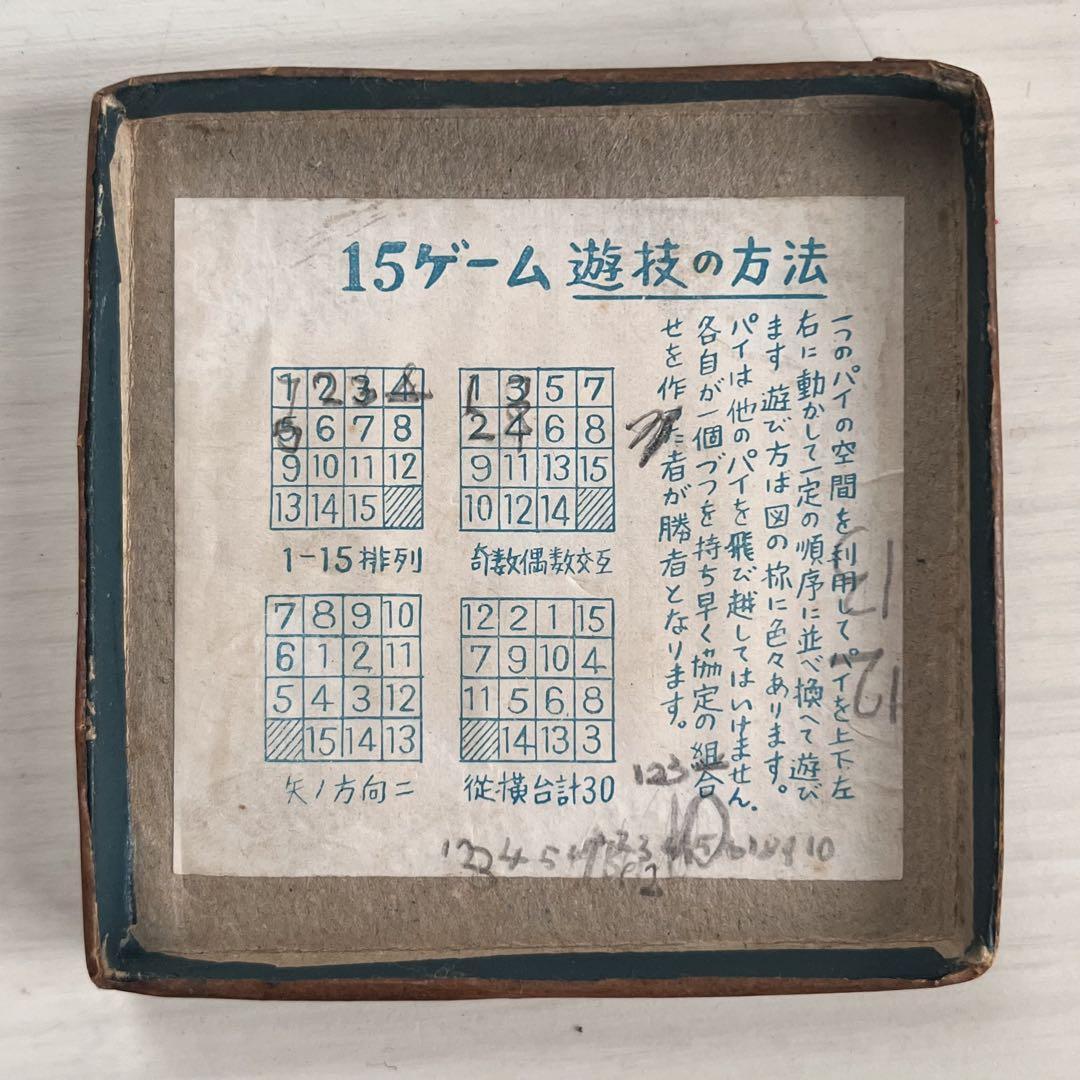 15ゲーム 遊技の方法
一つのパイの空間を利用してパイを上下左
右に動かして一定の順序に並べ換へて遊び
ます 遊び方は図の様に色々あります。
パイは他のパイを飛び越してはいけません.
各自が一個づつを持ち早く協定の組合
せを作た者が勝者となります。
1 2 3 4
5 6 7 8
9 10 11 12
13 14 15
1-15排列
1 3 5 7
2 4 6 8
9 11 13 15
10 12 14
奇数偶数交互
7 8 9 10
6 1 2 11
5 4 3 12
15 14 13
矢ノ方向ニ
12 2 1 15
7 9 10 4
11 5 6 8
14 13 3
従横合計30
123
10